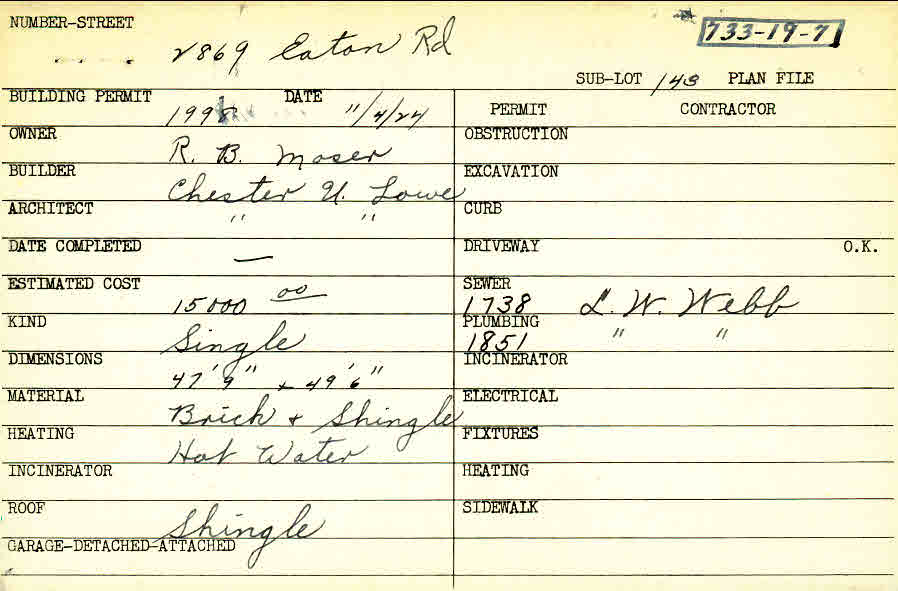 NUMBER-STREET
2869 Eaton Rd
733-19-7
SUB-LOT 143 PLAN FILE
BUILDING PERMIT 1998 DATE 11/4/24
PERMIT CONTRACTOR
OWNER R. B. Moser
OBSTRUCTION
BUILDER Chester U. Lowe
EXCAVATION
ARCHITECT " "
CURB
DATE COMPLETED —
DRIVEWAY O.K.
ESTIMATED COST 15000 00
SEWER 1738 L. W. Webb
KIND Single
PLUMBING 1851 " "
DIMENSIONS 47' 9" x 49' 6"
INCINERATOR
MATERIAL Brick + Shingle
ELECTRICAL
HEATING Hot Water
FIXTURES
INCINERATOR
HEATING
ROOF Shingle
SIDEWALK
GARAGE-DETACHED-ATTACHED